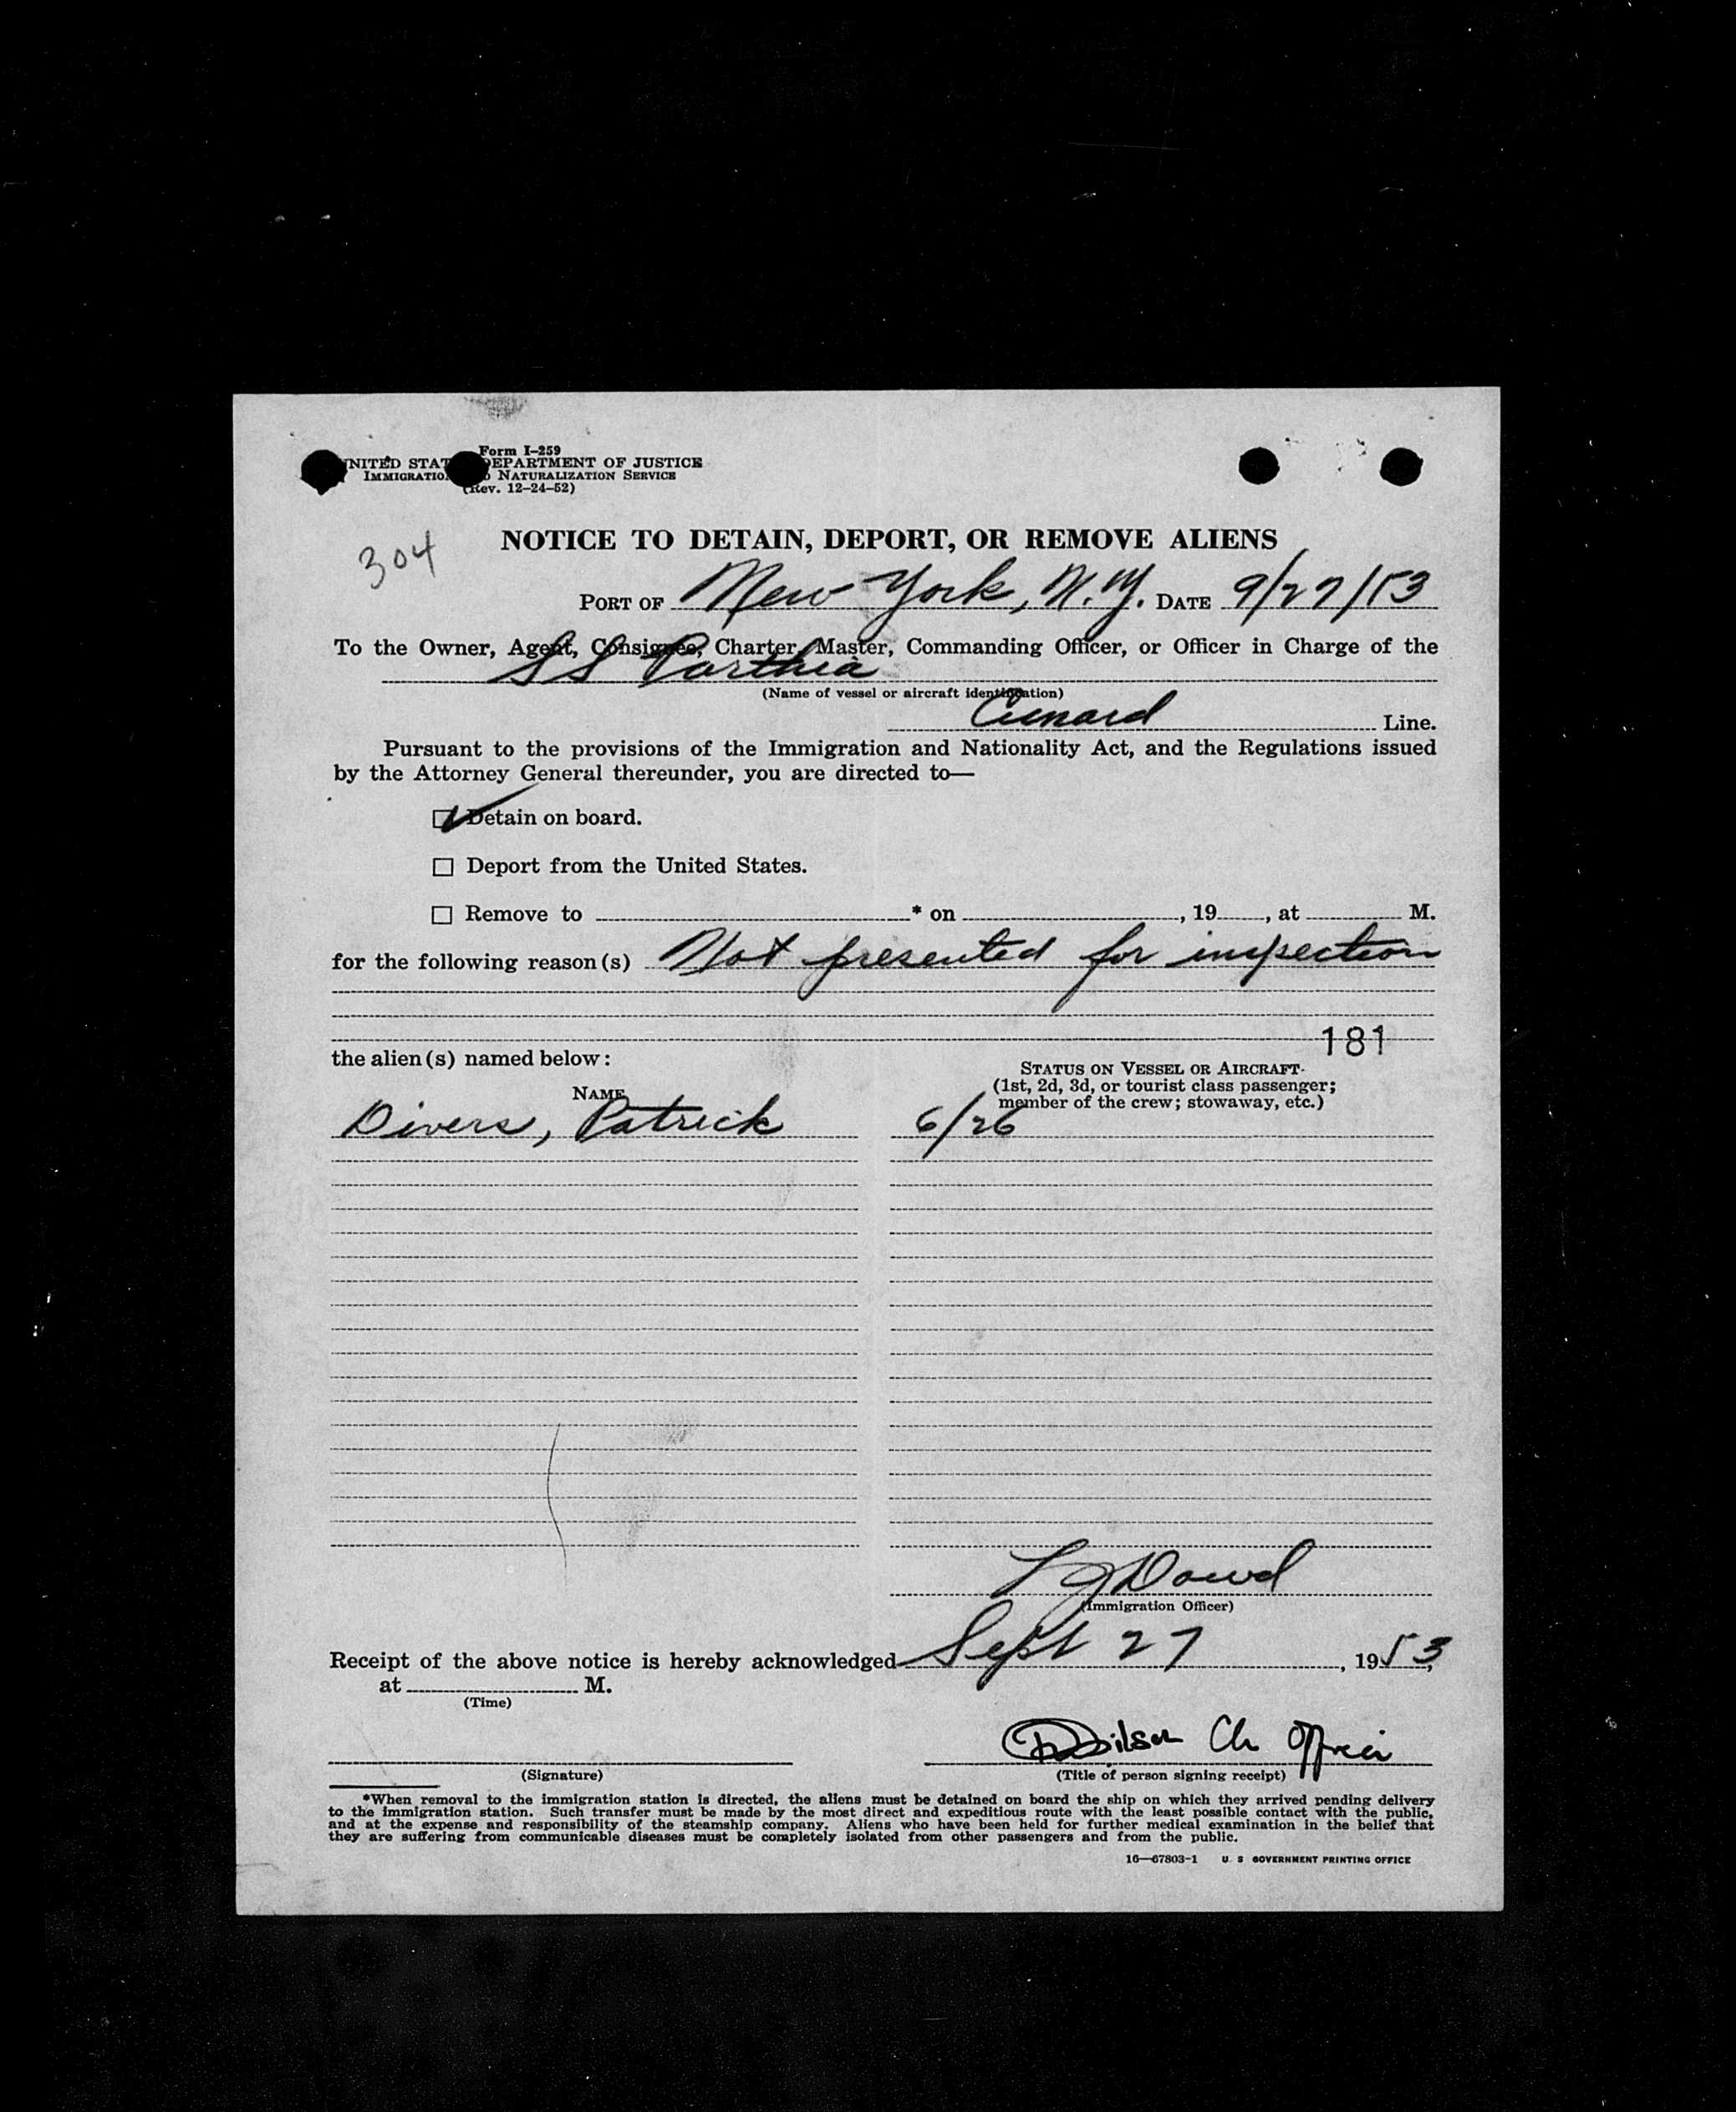 Form I-259
UNITED STATES DEPARTMENT OF JUSTICE
IMMIGRATION NATURALIZATION SERVICE
(Rev. 12-24-52)
304
NOTICE TO DETAIN, DEPORT, OR REMOVE ALIENS
PORT OF New York, N.Y. DATE 9/27/53
To the Owner, Agent, Consignee, Charter, Master, Commanding Officer, or Officer in Charge of the
SS Parthia
(Name of vessel or aircraft identification)
Cunard Line.
Pursuant to the provisions of the Immigration and Nationality Act, and the Regulations issued
by the Attorney General thereunder, you are directed to—
Detain on board.
Deport from the United States.
Remove to * on , 19 , at M.
for the following reason(s) Not presented for inspection
181
the alien(s) named below:
STATUS ON VESSEL OR AIRCRAFT
(1st, 2d, 3d, or tourist class passenger;
NAME
member of the crew; stowaway, etc.)
Divers, Patrick 6/26
Dowd
(Immigration Officer)
Receipt of the above notice is hereby acknowledged Sept 27, 1953,
at M.
(Time)
Ch Officer
(Signature) (Title of person signing receipt)
*When removal to the immigration station is directed, the aliens must be detained on board the ship on which they arrived pending delivery
to the immigration station. Such transfer must be made by the most direct and expeditious route with the least possible contact with the public,
and at the expense and responsibility of the steamship company. Aliens who have been held for further medical examination in the belief that
they are suffering from communicable diseases must be completely isolated from other passengers and from the public.
16—67803-1 U. S GOVERNMENT PRINTING OFFICE